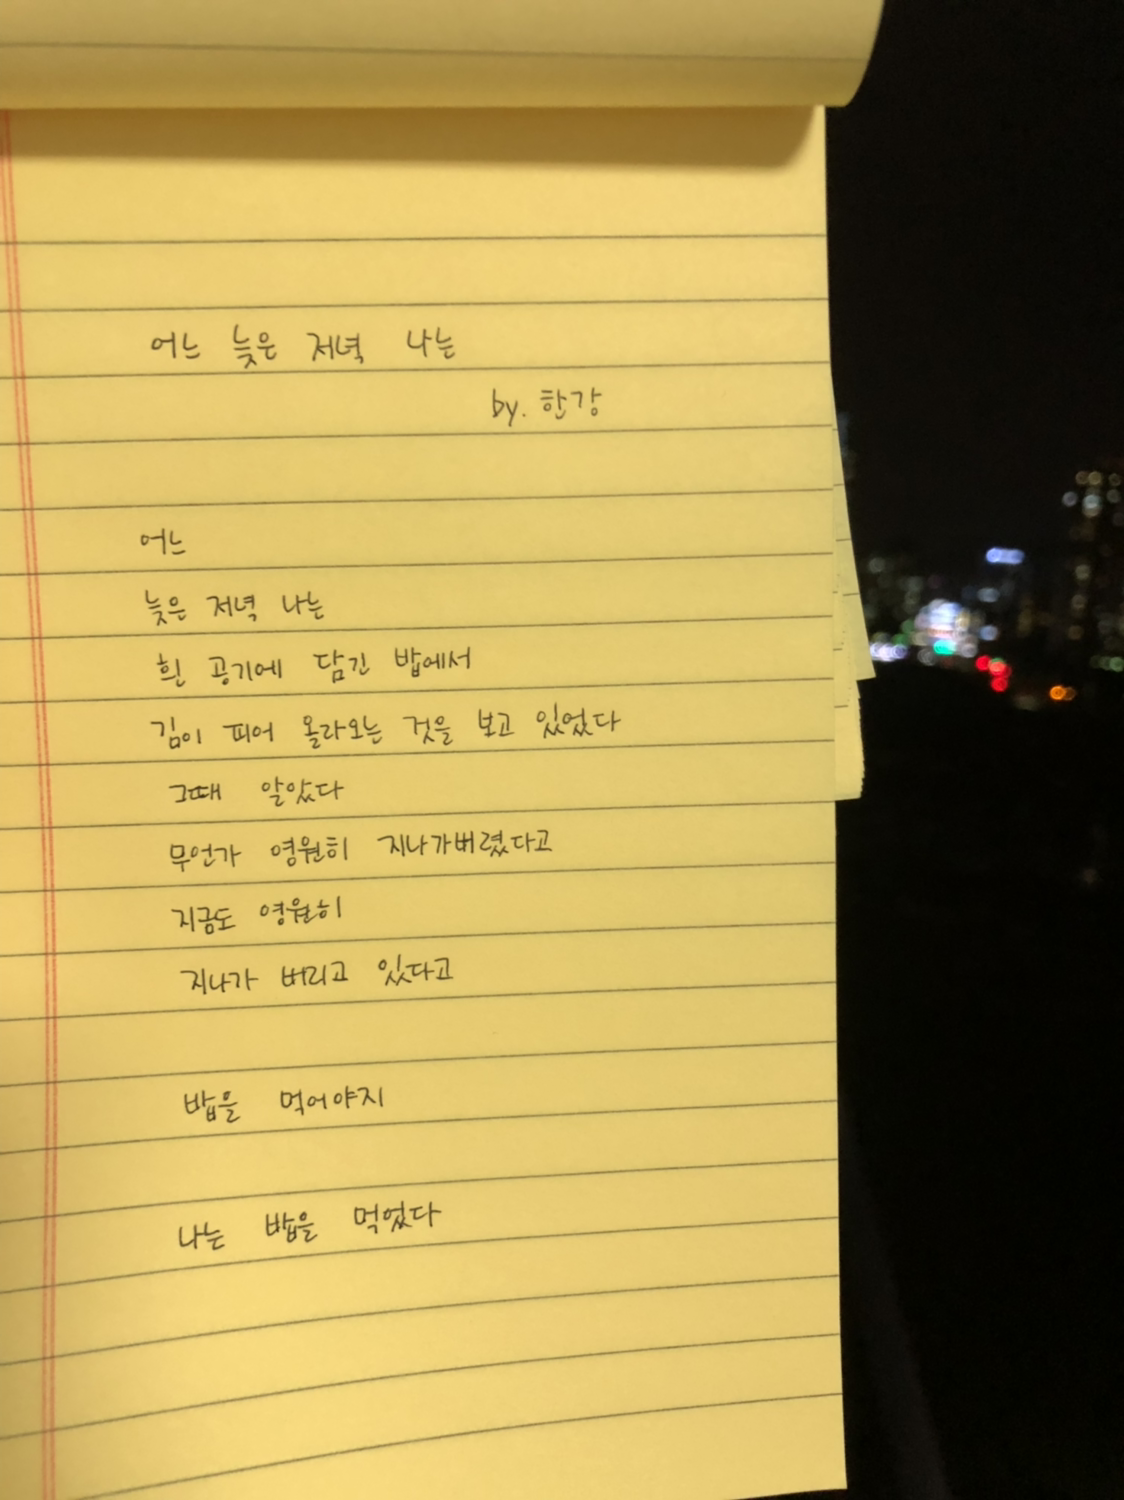 어느 늦은 저녁 나는
by. 한강
어느
늦은 저녁 나는
흰 공기에 담긴 밥에서
김이 피어 올라오는 것을 보고 있었다
그때 알았다
무언가 영원히 지나가버렸다고
지금도 영원히
지나가 버리고 있다고
밥을 먹어야지
나는 밥을 먹었다